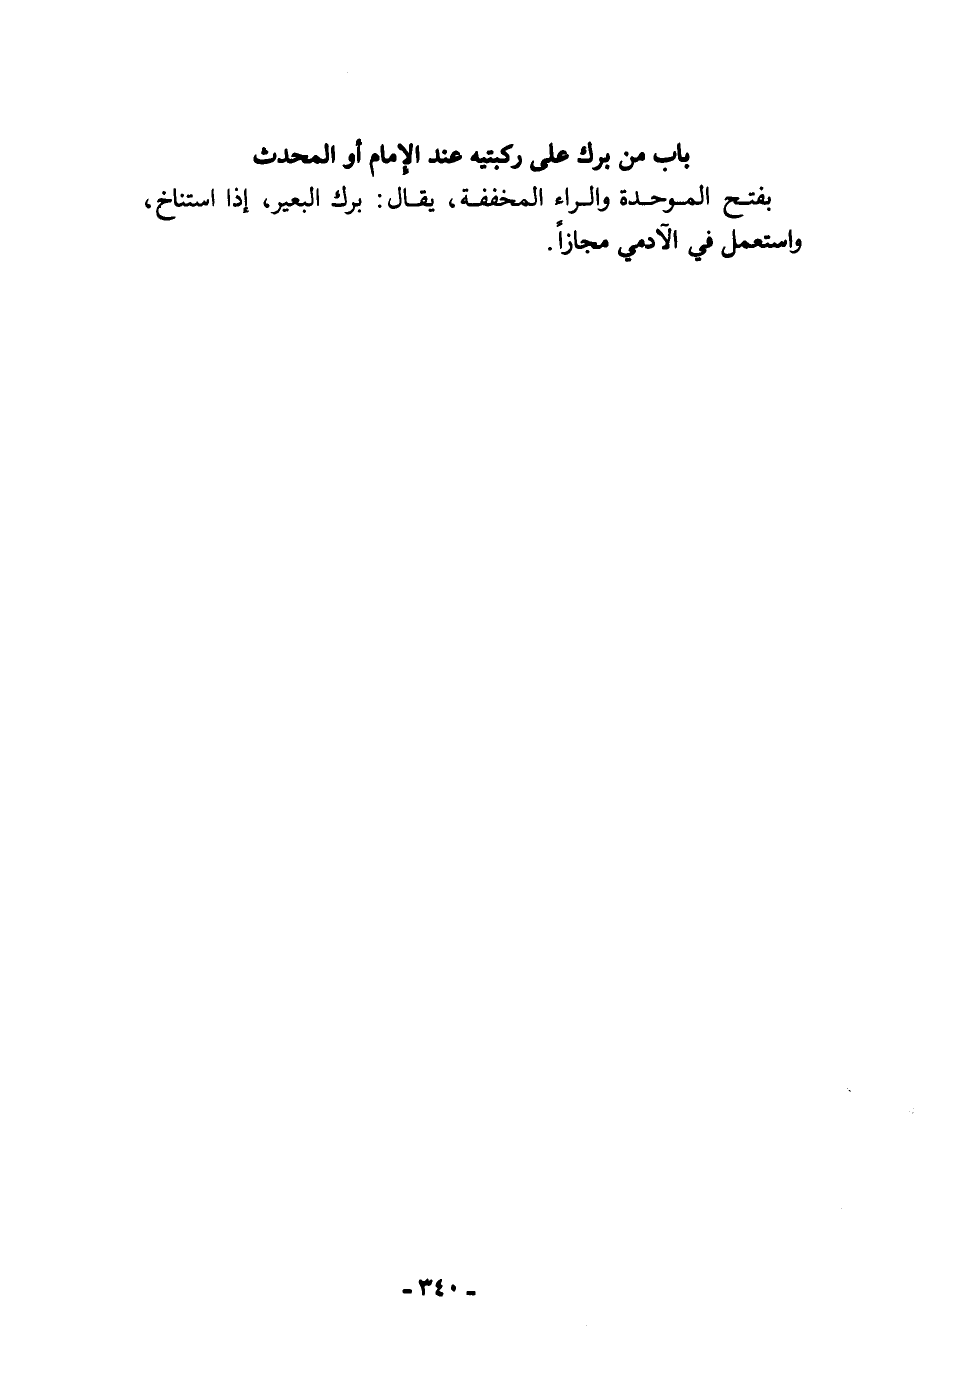 باب من برك على ركبتيه عند الإمام أو المحدث
بفتح الموحدة والراء المخففة، يقال: برك البعير، إذا استناخ،
واستعمل في الآدمي مجازاً.
- ٣٤٠ -